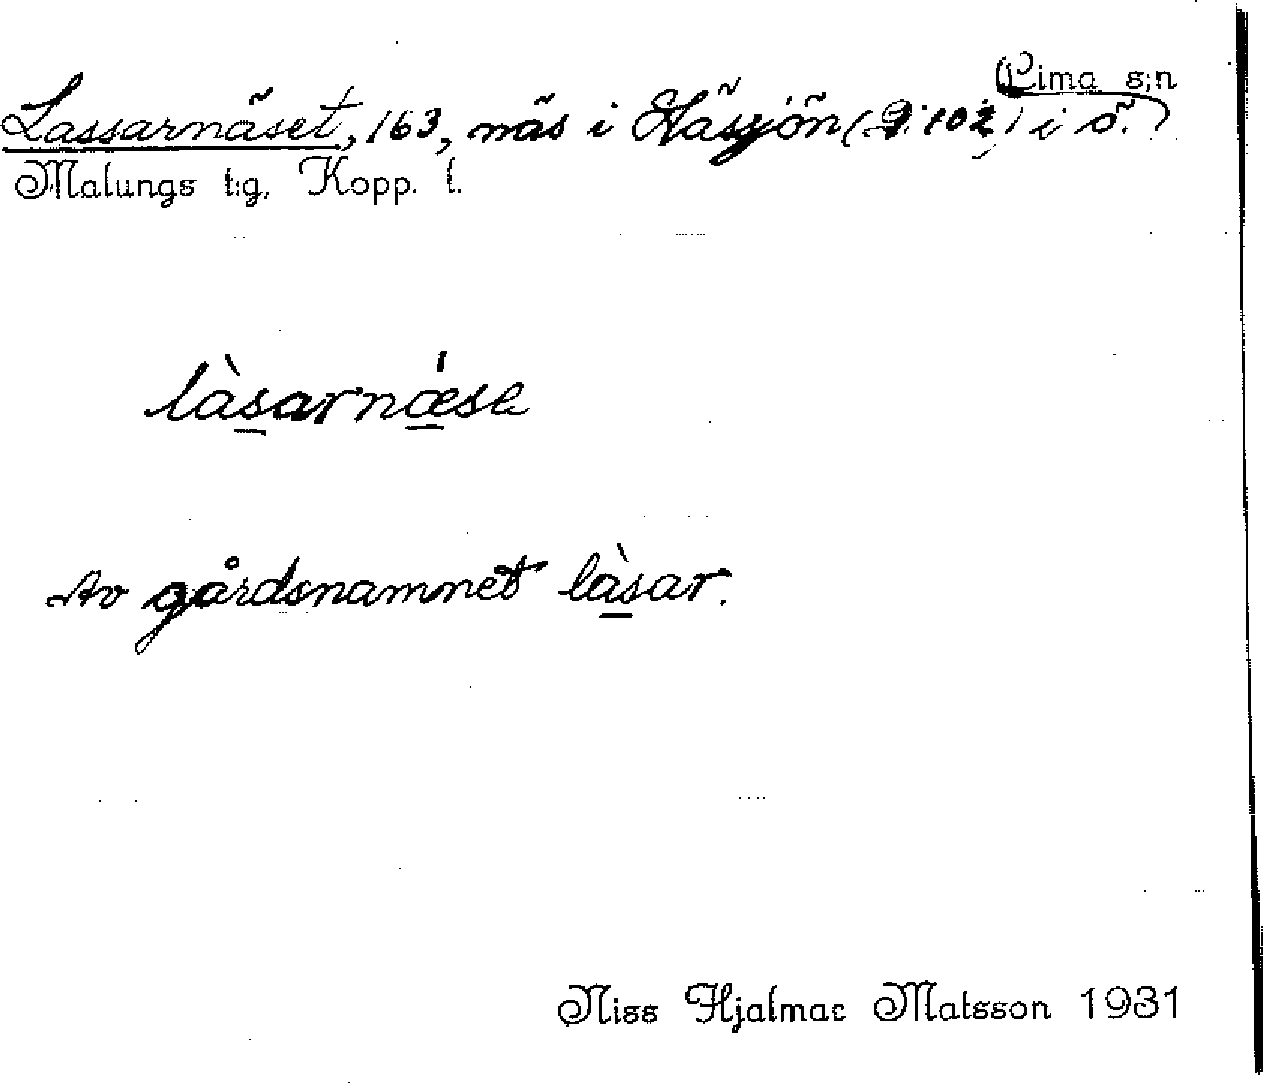 Lima s:n
Lassarnäset, 163, näs i Häsjön (D: 102) i ö.
Malungs t:g. Kopp. l.
làsarnǽsa
Av gårdsnamnet làsar.
Niss Hjalmar Matsson 1931